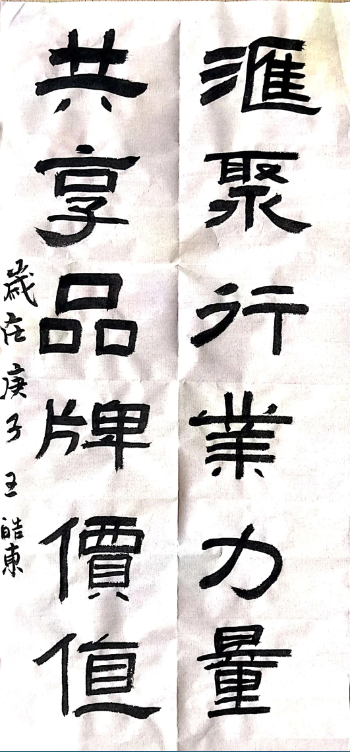 滙聚行業力量
共享品牌價值
歲在庚子王皓東